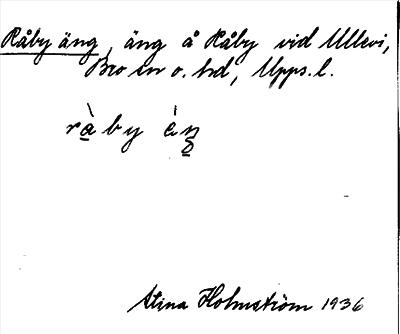 Råby äng, äng å Råby vid Ullevi,
Bro sn o. hd, Upps. l.
rå̀by ä̀ŋ
Stina Holmström 1936